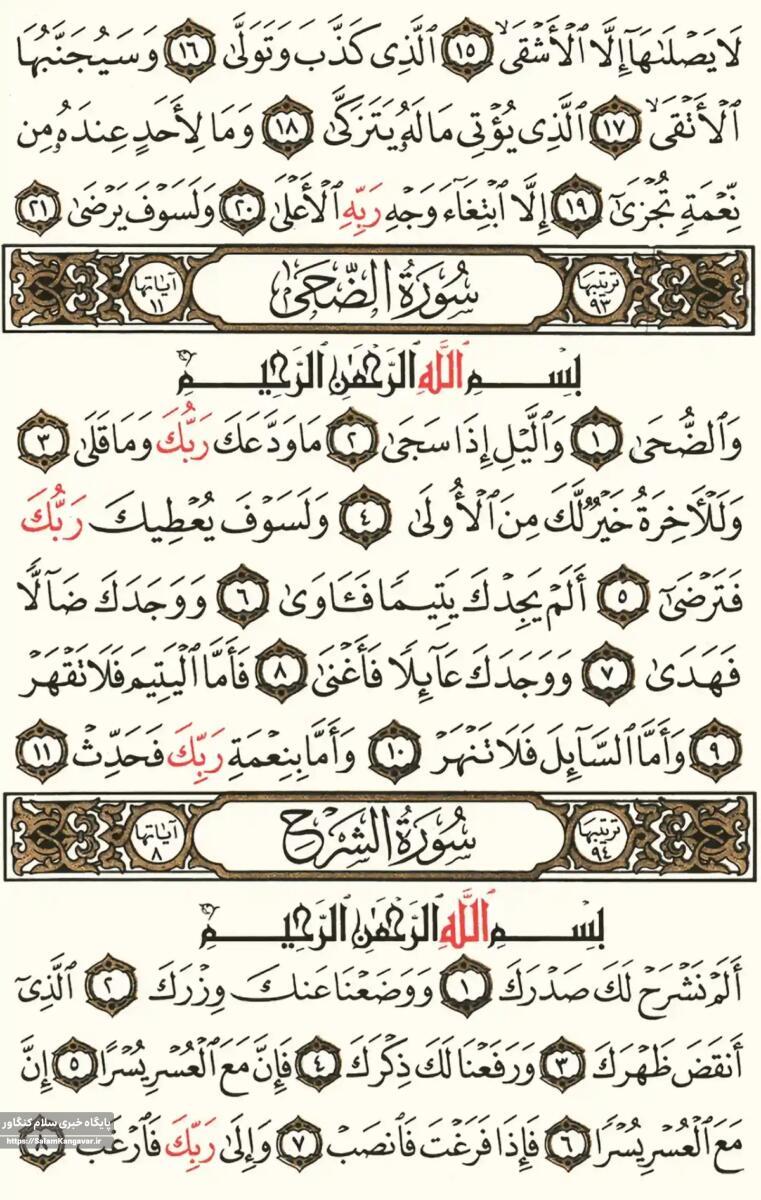 لَا يَصْلَىٰهَآ إِلَّا ٱلْأَشْقَى ١٥ ٱلَّذِى كَذَّبَ وَتَوَلَّىٰ ١٦ وَسَيُجَنَّبُهَا
ٱلْأَتْقَى ١٧ ٱلَّذِى يُؤْتِى مَالَهُۥ يَتَزَكَّىٰ ١٨ وَمَا لِأَحَدٍ عِندَهُۥ مِن
نِّعْمَةٍ تُجْزَىٰٓ ١٩ إِلَّا ٱبْتِغَآءَ وَجْهِ رَبِّهِ ٱلْأَعْلَىٰ ٢٠ وَلَسَوْفَ يَرْضَىٰ ٢١
ترتيبها ٩٣ سُورَةُ الضُّحَىٰ آياتها ١١
بِسْمِ ٱللَّهِ ٱلرَّحْمَٰنِ ٱلرَّحِيمِ
وَٱلضُّحَىٰ ١ وَٱلَّيْلِ إِذَا سَجَىٰ ٢ مَا وَدَّعَكَ رَبُّكَ وَمَا قَلَىٰ ٣
وَلَلْـَٔاخِرَةُ خَيْرٌ لَّكَ مِنَ ٱلْأُولَىٰ ٤ وَلَسَوْفَ يُعْطِيكَ رَبُّكَ
فَتَرْضَىٰٓ ٥ أَلَمْ يَجِدْكَ يَتِيمًا فَـَٔاوَىٰ ٦ وَوَجَدَكَ ضَآلًّا
فَهَدَىٰ ٧ وَوَجَدَكَ عَآئِلًا فَأَغْنَىٰ ٨ فَأَمَّا ٱلْيَتِيمَ فَلَا تَقْهَرْ
٩ وَأَمَّا ٱلسَّآئِلَ فَلَا تَنْهَرْ ١٠ وَأَمَّا بِنِعْمَةِ رَبِّكَ فَحَدِّثْ ١١
ترتيبها ٩٤ سُورَةُ الشَّرْحِ آياتها ٨
بِسْمِ ٱللَّهِ ٱلرَّحْمَٰنِ ٱلرَّحِيمِ
أَلَمْ نَشْرَحْ لَكَ صَدْرَكَ ١ وَوَضَعْنَا عَنكَ وِزْرَكَ ٢ ٱلَّذِىٓ
أَنقَضَ ظَهْرَكَ ٣ وَرَفَعْنَا لَكَ ذِكْرَكَ ٤ فَإِنَّ مَعَ ٱلْعُسْرِ يُسْرًا ٥ إِنَّ
مَعَ ٱلْعُسْرِ يُسْرًا ٦ فَإِذَا فَرَغْتَ فَٱنصَبْ ٧ وَإِلَىٰ رَبِّكَ فَٱرْغَب ٨
پایگاه خبری سلام کنگاور
https://SalamKangavar.ir